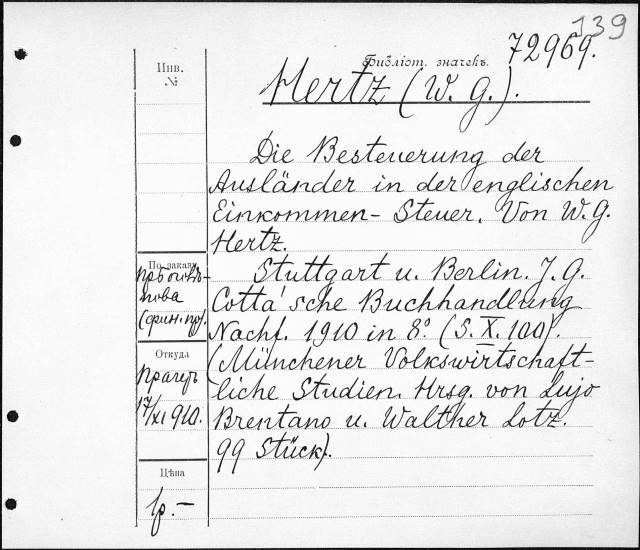 139
72969.
Инв.
№
Библіот. значекъ.
Hertz (W. G.).
Die Besteuerung der
Ausländer in der englischen
Einkommen- Steuer. Von W. G.
Hertz.
По заказу
Stuttgart u. Berlin. J. G.
Cotta'sche Buchhandlung
Nachf. 1910 in 8º. (S. X. 100).
(фин. пр).
Откуда
(Münchener Volkswirtschaft-
liche Studien. Hrsg. von Lujo
Прагеръ
17/XI 910.
Brentano u. Walther Lotz.
99 Stück).
Цѣна
1р.-